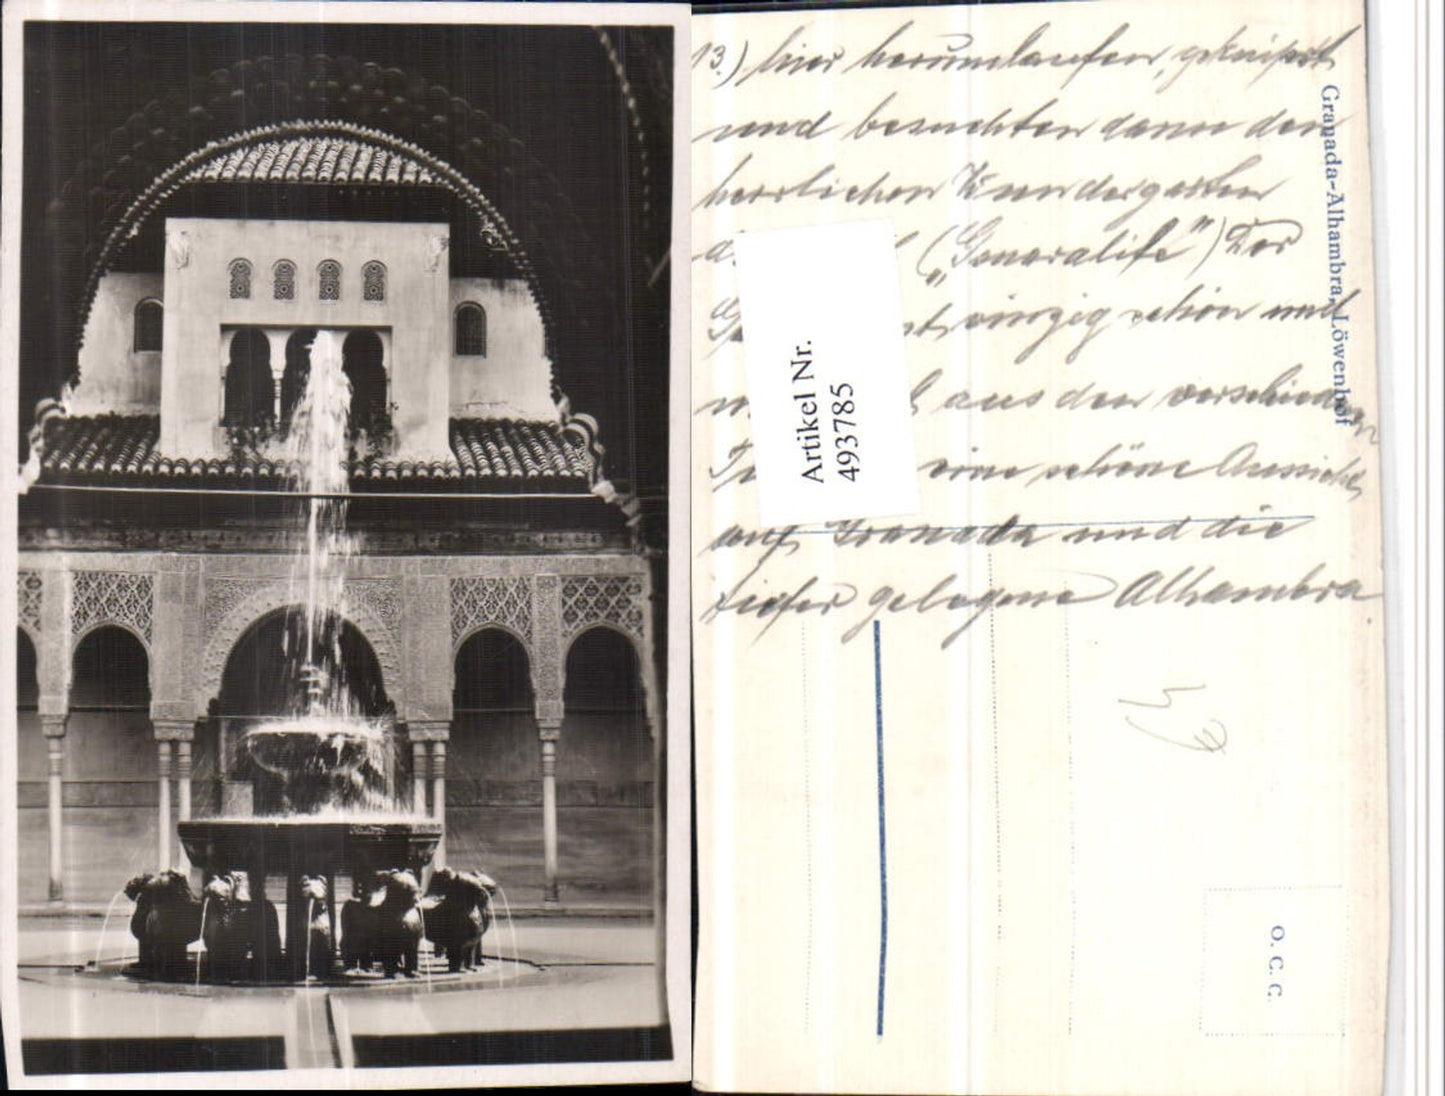 13.) hier herumlaufen, geknipst
und besuchten dann den
herrlichen Wundergarten
("Generalife") Der
einzig schön und
aus den verschieden
eine schöne Aussicht
auf Granada und die
tiefer gelegene Alhambra.
Granada-Alhambra, Löwenhof
Artikel Nr.
493785
O. C. C.